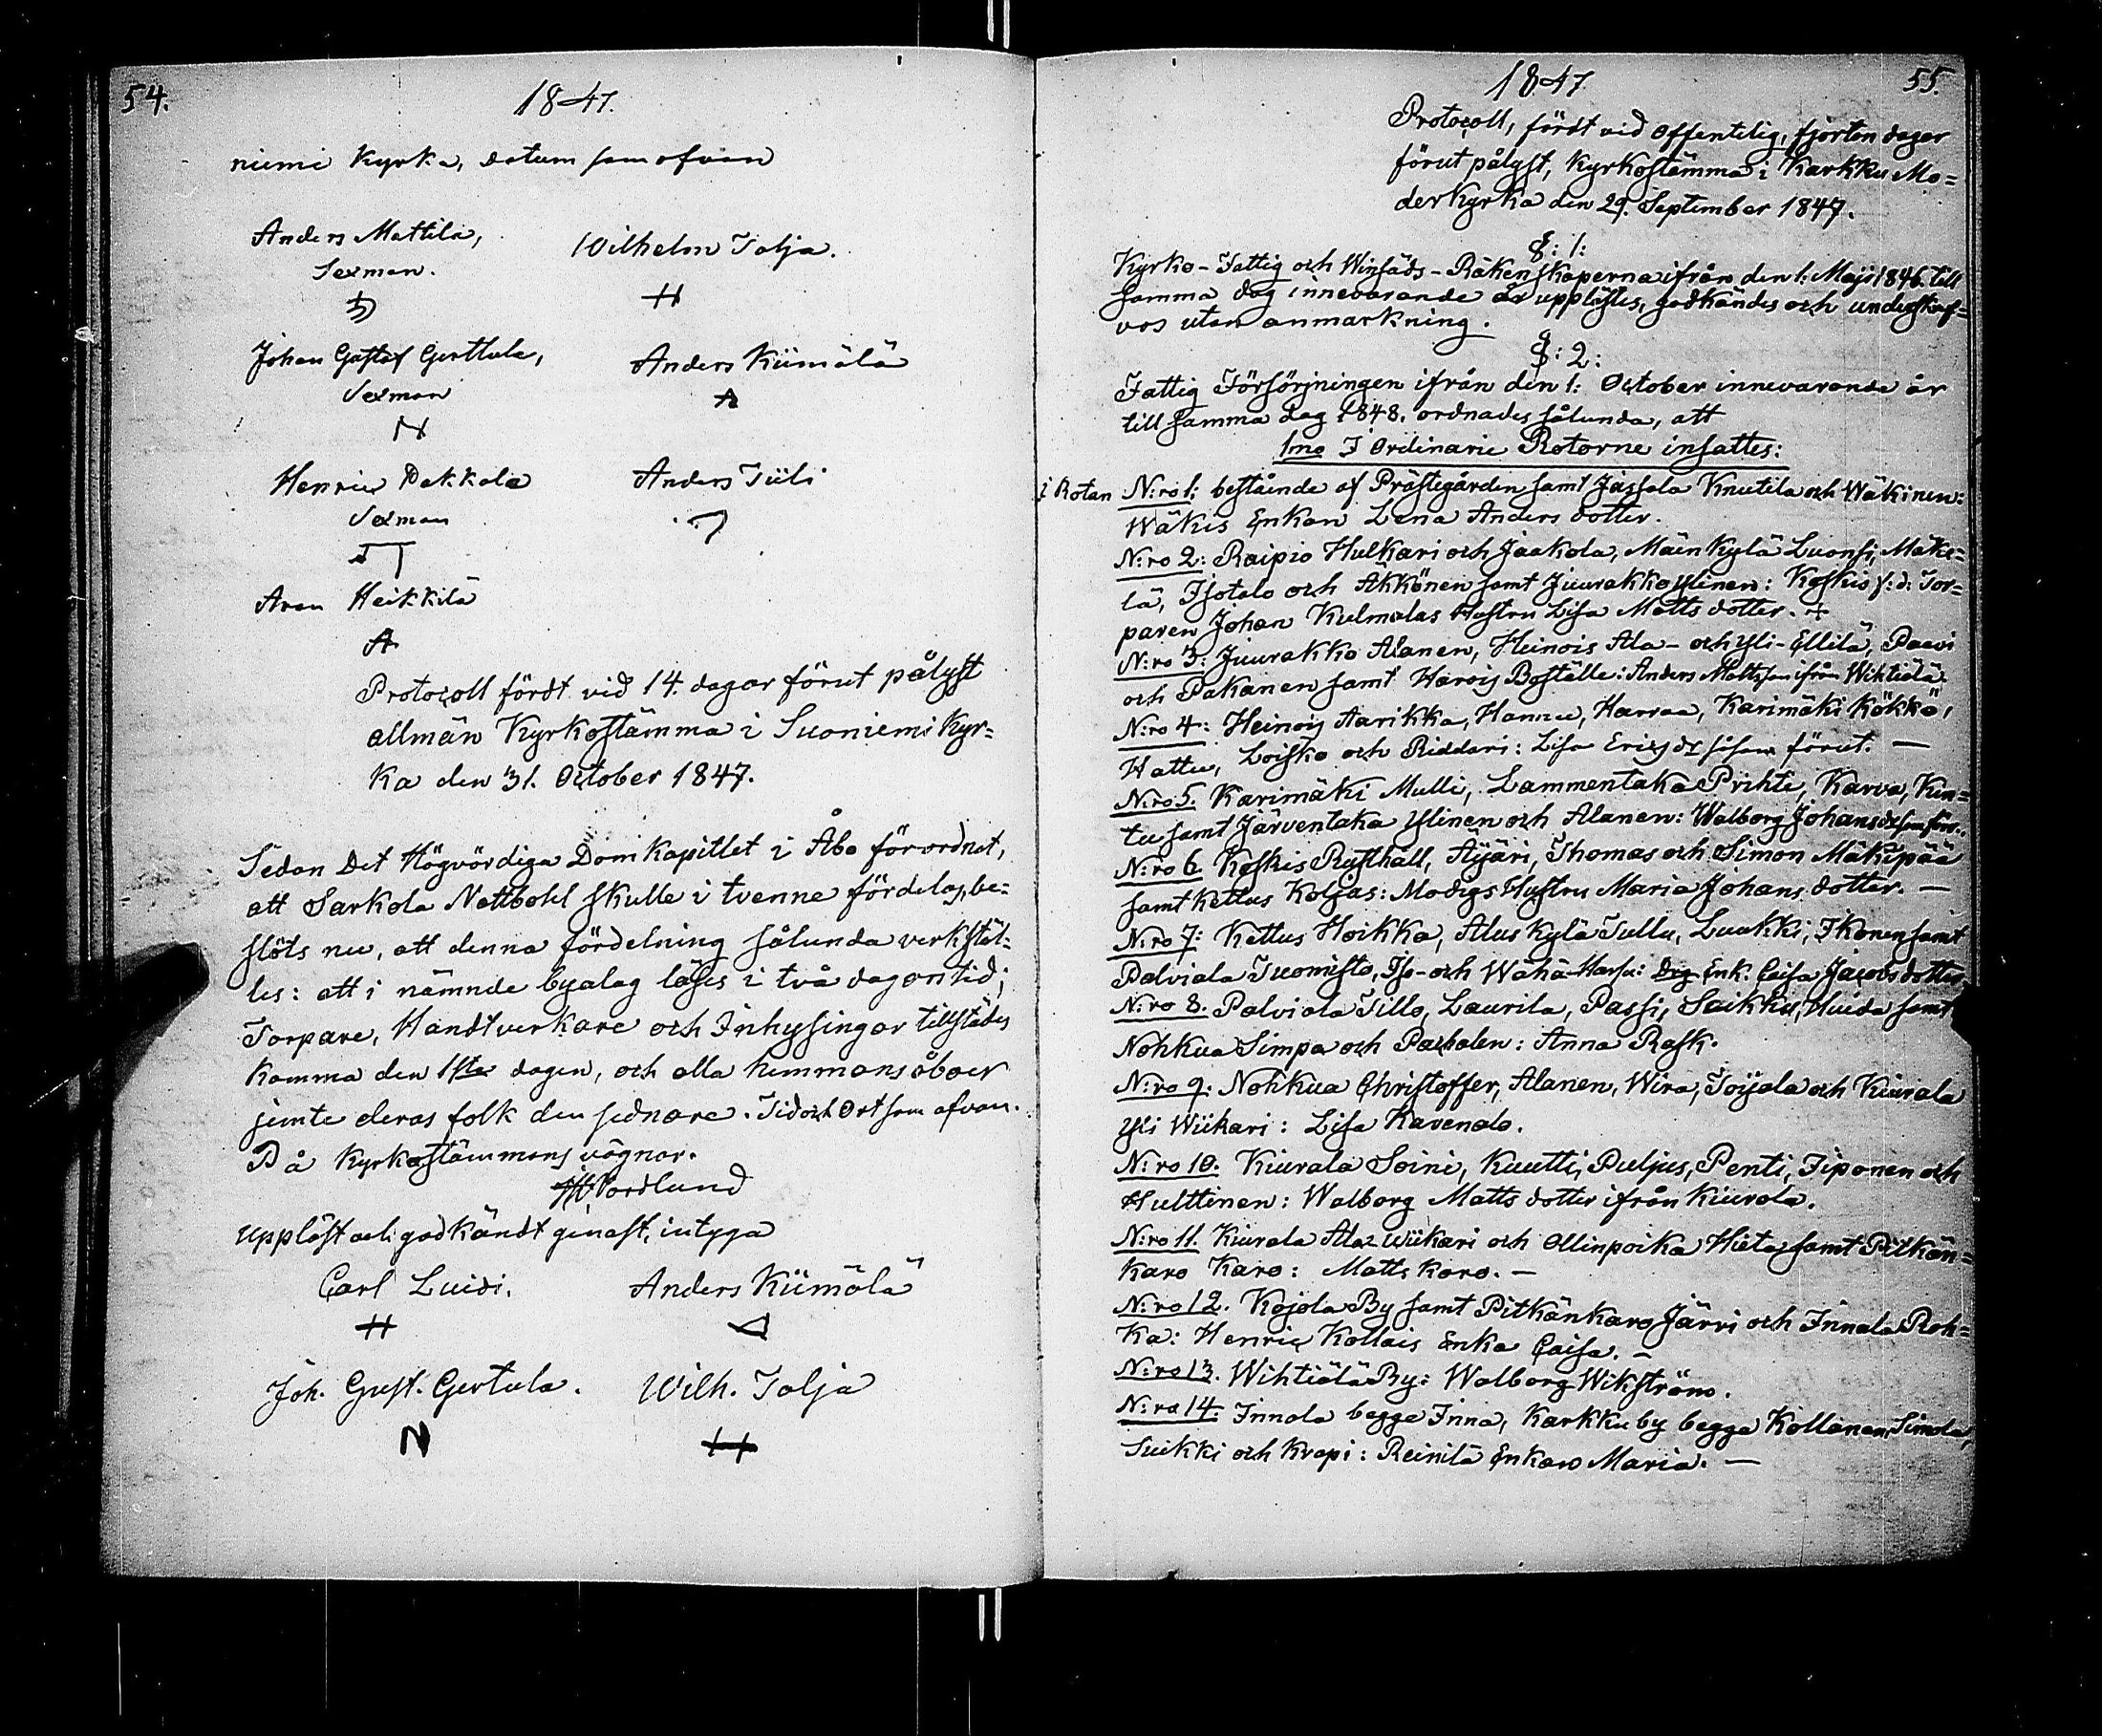 54.
1847.
niemi Kyrka, datum som ofvan
Anders Mattila,
Sexman.
Wilhelm Tolja.
Johan Gustaf Gerttula,
Sexman
Anders Kiimälä
Henric Pakkala
Sexman
Anders Tiili
Aron Heikkilä
Protocoll fördt vid 14. dagar förut pålyst
allmän Kyrkostämma i Suoniemi Kyr=
ka den 31. October 1847.
Sedan Det Högvördiga Domkapitlet i Åbo förordnat,
att Sarkola Nattbohl skulle i tvenne fördelas, be=
slöts nu, att denna fördelning sålunda verkstäl=
les: att i nämnde byalag läses i två dagars tid;
Torpare, Handtverkare och Inhysingar tillstädes
komma den 1sta dagen, och alla hemmansåboer
jemte deras folk den sednare. Tid och Ort som ofvan.
På Kyrkostämmans vägnar.
Nordlund
Uppläst och godkändt genast, intyga
Carl Luidi.
Anders Kiimälä
Joh. Gust. Gertula.
Wilh. Tolja
1847.
55.
Protocoll, fördt vid offentelig, fjorton dagar
förut pålyst, Kyrkostämma i Karkku Mo=
derkyrka den 29. September 1847.
§: 1:
Kyrko- Fattig och Winsäds- Räkenskaperna ifrån den 1. Maji 1846. till
samma dag innevarande år upplästes, godkändes och underskref=
vos utan anmärkning.
§: 2:
Fattig Försörjningen ifrån den 1: October innevarande år
till samma dag 1848. ordnades sålunda, att
1mo I Ordinarie Rotorne insattes:
i Rotan N:ro 1: bestående af Prästegården samt Jassala Knutila och Wäkinen:
Wäkis Enkan Lena Anders dotter.
N:ro 2: Raipio Hulkari och Jaakola, Mäenkylä Luonsi, Mäke=
lä, Isotalo och Äkkönen samt Juurakko Ylinen: Koskis f:d. Tor=
paren Johan Kulmalas Hustru Lisa Matts dotter. +
N:ro 3: Juurakko Alanen, Heinois Ala- och Yli-Ellilä, Paavi
och Pakanen samt Harois Boställe: Anders Mattsson ifrån Wihtiälä.
N:ro 4: Heinois Aarikka, Hannu, Harraa, Karimäki Kökkö,
Hattu, Loisko och Riddari: Lisa Ericsdr såsom förut. —
N:ro 5. Karimäki Mulli, Lammentaka Prihti, Karva, Kun=
tu samt Järventaka Ylinen och Alanen: Walborg Johansdr som förut.
N:ro 6. Koskis Rusthåll, Äijäri, Thomas och Simon Mäkipää
samt Kettus Koljas: Modigs Hustru Maria Johans dotter. —
N:ro 7: Kettus Hoikka, Aluskylä Tullu, Luukki, Ikonen samt
Palviala Tuomisto, Iso- och Wähä-Hassu: Enk. Caisa Jacobsdotter.
N:ro 8. Palviala Tillo, Laurila, Passi, Saikku, Huida samt
Nohkua Simpa och Partalen: Anna Rask.
N:ro 9. Nohkua Christoffer, Alanen, Wira, Toijala och Kiurala
Yli Wiikari: Lisa Kavenalo.
N:ro 10. Kiurala Soini, Kuutti, Puljus, Penti, Iiponen och
Hulttinen: Walborg Matts dotter ifrån Kiurala.
N:ro 11. Kiurala Ala-Wiikari och Ollinpoika Hieta samt Pitkän=
karo Karo: Matts Karo. —
N:ro 12. Kojola By samt Pitkänkaro Järvi och Innala Roh=
ka: Henric Kollais Enka Caisa. —
N:ro 13. Wihtiälä By: Walborg Wikström.
N:ro 14. Innala begge Inna, Karkku by begge Kollanen, Simola,
Suikki och Krapi: Reinilä Enkan Maria. —